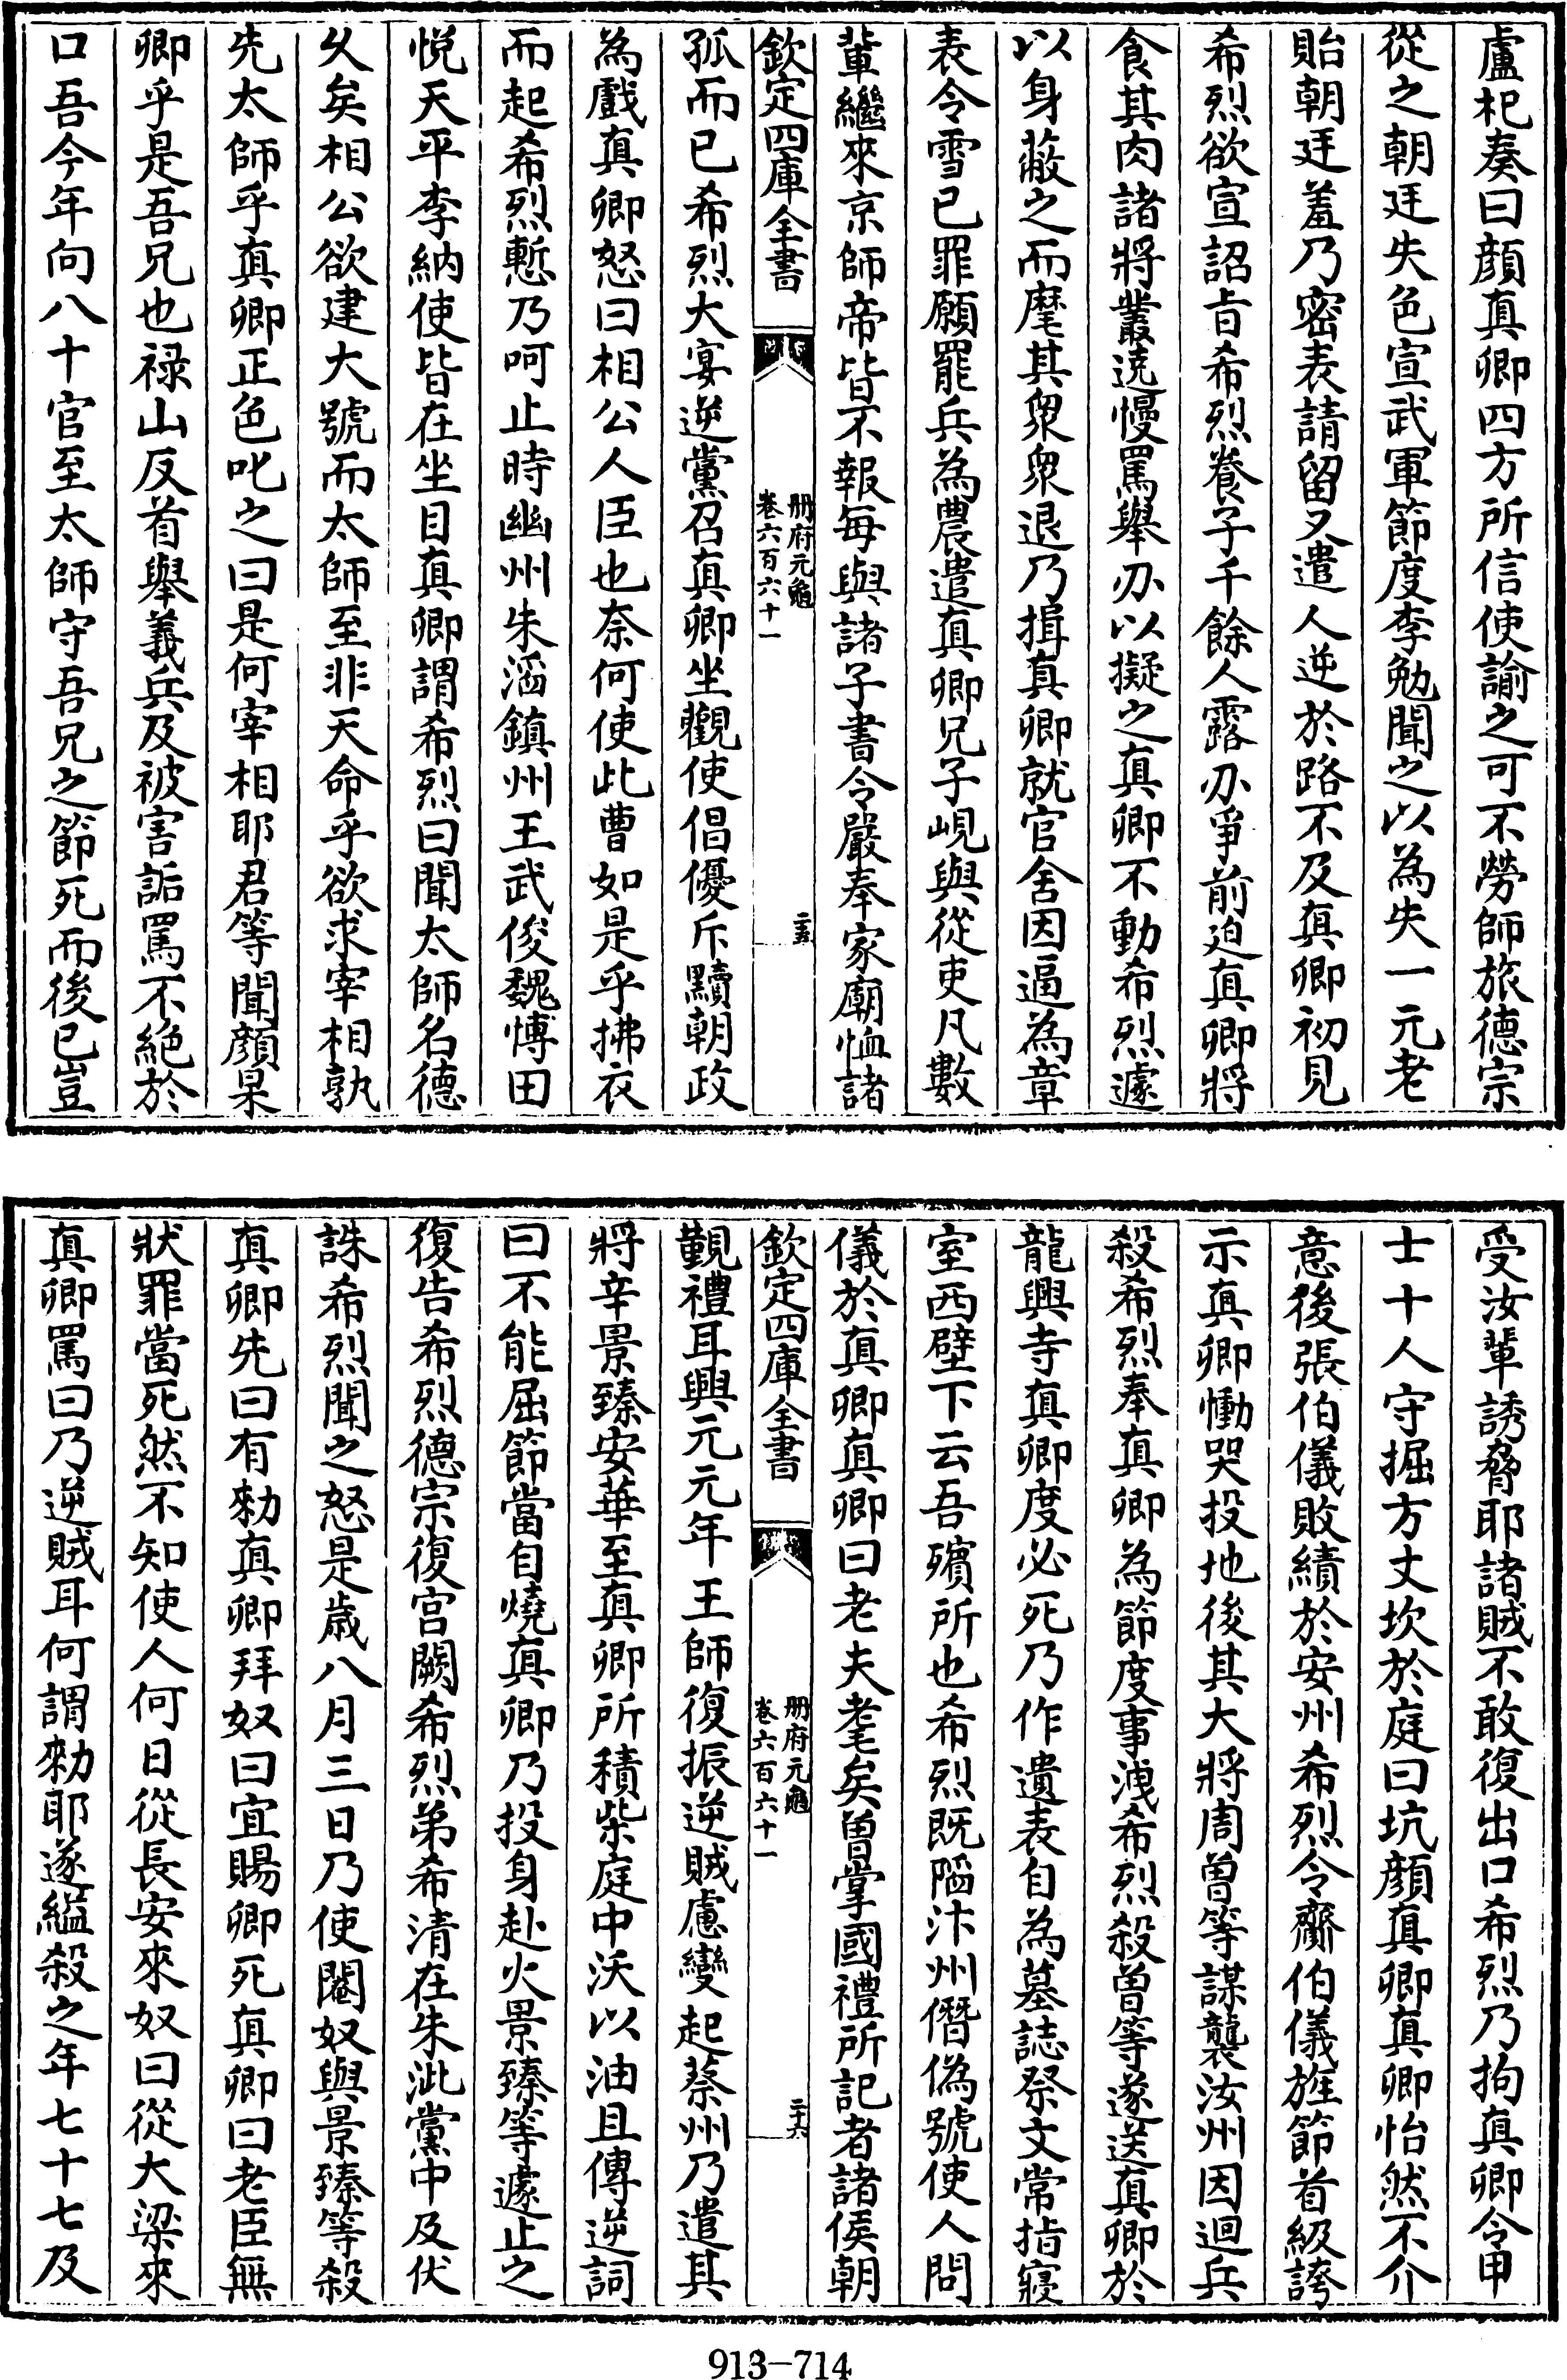 盧杞奏曰顔真卿四方所信使諭之可不勞師旅德宗
從之朝廷失色宣武軍節度李勉聞之以為失一元老
貽朝廷羞乃密表請留又遣人逆於路不及真卿初見
希烈欲宣詔旨希烈養子千餘人露刃爭前迫真卿將
食其肉諸將叢遶慢罵舉刃以擬之真卿不動希烈遽
以身蔽之而麾其衆衆退乃揖真卿就官舍因逼為章
表令雪已罪願罷兵為農遣真卿兄子峴與從吏凡數
輩繼來京師帝皆不報每與諸子書令嚴奉家廟恤諸
欽定四庫全書
册府元龜
卷六百六十一
二十五
孤而已希烈大宴逆黨召真卿坐觀使倡優斥黷朝政
為戲真卿怒曰相公人臣也奈何使此曹如是乎拂衣
而起希烈慙乃呵止時幽州朱滔鎮州王武俊魏博田
悦天平李納使皆在坐目真卿謂希烈曰聞太師名德
乆矣相公欲建大號而太師至非天命乎欲求宰相孰
先太師乎真卿正色叱之曰是何宰相耶君等聞顔杲
卿乎是吾兄也禄山反首舉義兵及被害詬罵不絶於
口吾今年向八十官至太師守吾兄之節死而後已豈
受汝輩誘脅耶諸賊不敢復出口希烈乃拘真卿令甲
士十人守掘方丈坎於庭曰坑顔真卿真卿怡然不介
意後張伯儀敗績於安州希烈令齎伯儀旌節首級誇
示真卿慟哭投地後其大將周曽等謀襲汝州因迴兵
殺希烈奉真卿為節度事洩希烈殺曽等遂送真卿於
龍興寺真卿度必死乃作遺表自為墓誌祭文常指寢
室西壁下云吾殯所也希烈既陷汴州僭偽號使人問
儀於真卿真卿曰老夫耄矣曽掌國禮所記者諸侯朝
欽定四庫全書
册府元龜
卷六百六十一
二十六
覲禮耳興元元年王師復振逆賊慮變起蔡州乃遣其
將辛景臻安華至真卿所積柴庭中沃以油且傳逆詞
曰不能屈節當自燒真卿乃投身赴火景臻等遽止之
復告希烈德宗復宫闕希烈弟希清在朱泚黨中及伏
誅希烈聞之怒是歳八月三日乃使閹奴與景臻等殺
真卿先曰有勑真卿拜奴曰宜賜卿死真卿曰老臣無
狀罪當死然不知使人何日從長安來奴曰從大梁來
真卿罵曰乃逆賊耳何謂勑耶遂縊殺之年七十七及
913-714